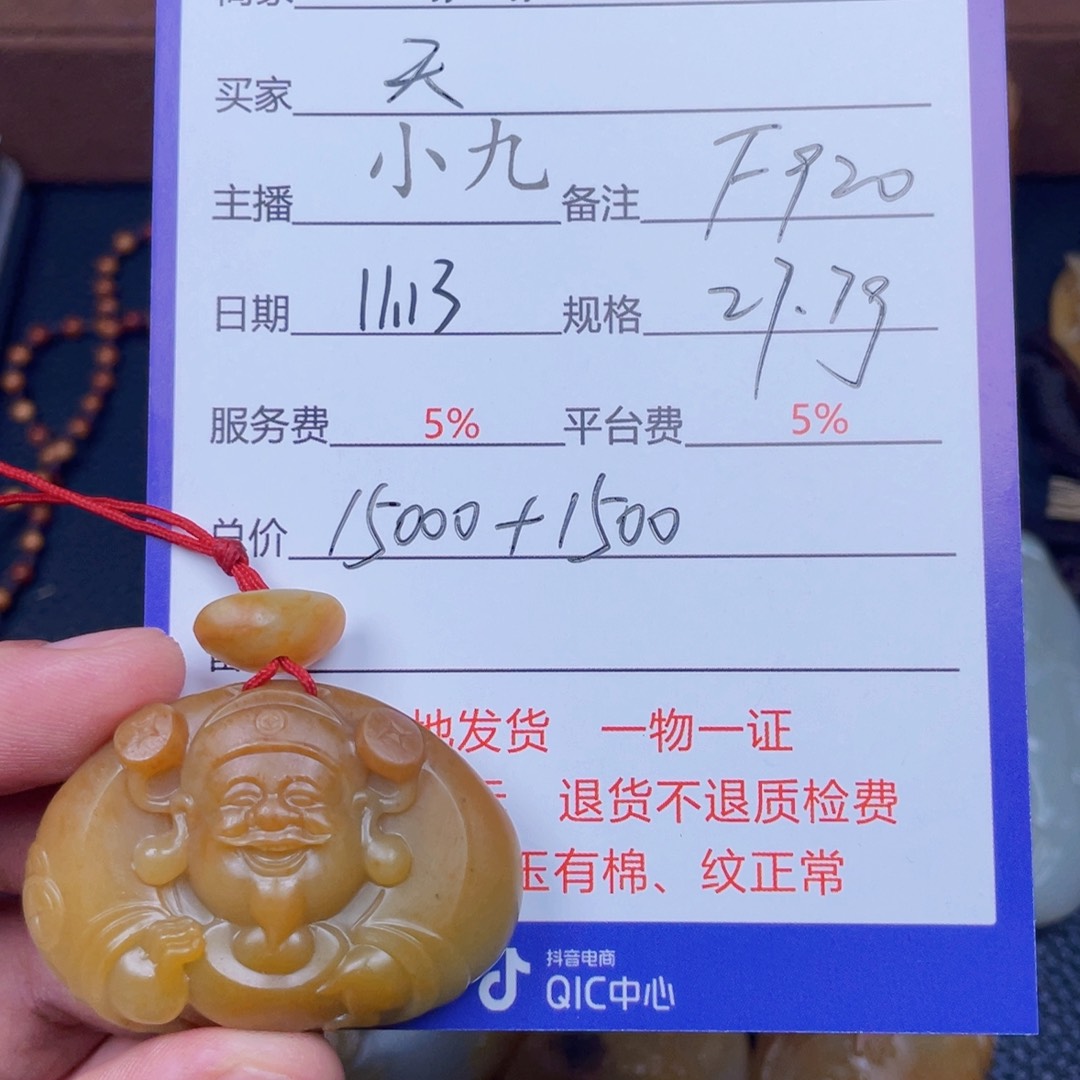 买家 天
主播 小九 备注 F920
日期 11.13 规格 27.7g
服务费 5% 平台费 5%
总价 15000+1500
地发货 一物一证
退货不退质检费
玉有棉、纹正常
抖音电商
QIC中心